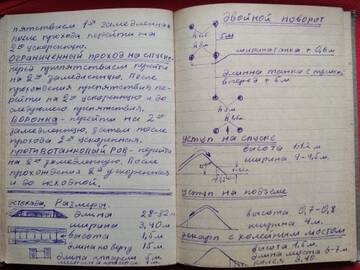 пятствием 1ую замедленная
после прохода перейти на
2ую ускоренную.
Ограниченный проход на спуске
перед препятствием перейти
на 2ую замедленную. После
прохождения препятствия пе-
рейти на 2ую ускоренную и до
следующего препятствия.
Воронка - перейти на 2ую
замедленную, затем после
прохода 2ую ускоренная.
Противотанковый ров - перейти
на 2ую замедленную. После
прохождения 2ую ускоренная
и до исходной.
Эстакада, Размеры.
длина 28-32м
ширина 3,40м
высота 1,5м
длина по верху 15м
длина аппарели 6м
Двойной поворот
ширина танка + 0,6м
длина танка с пушкой
вперед + 6м
Уступ на спуске
высота
ширина 4-4,5м.
Уступ на подъеме
высота 0,7-0,8
ширина 4м.
Эскарп с колейным мостом
высота 1,6м
длина моста 6-7м